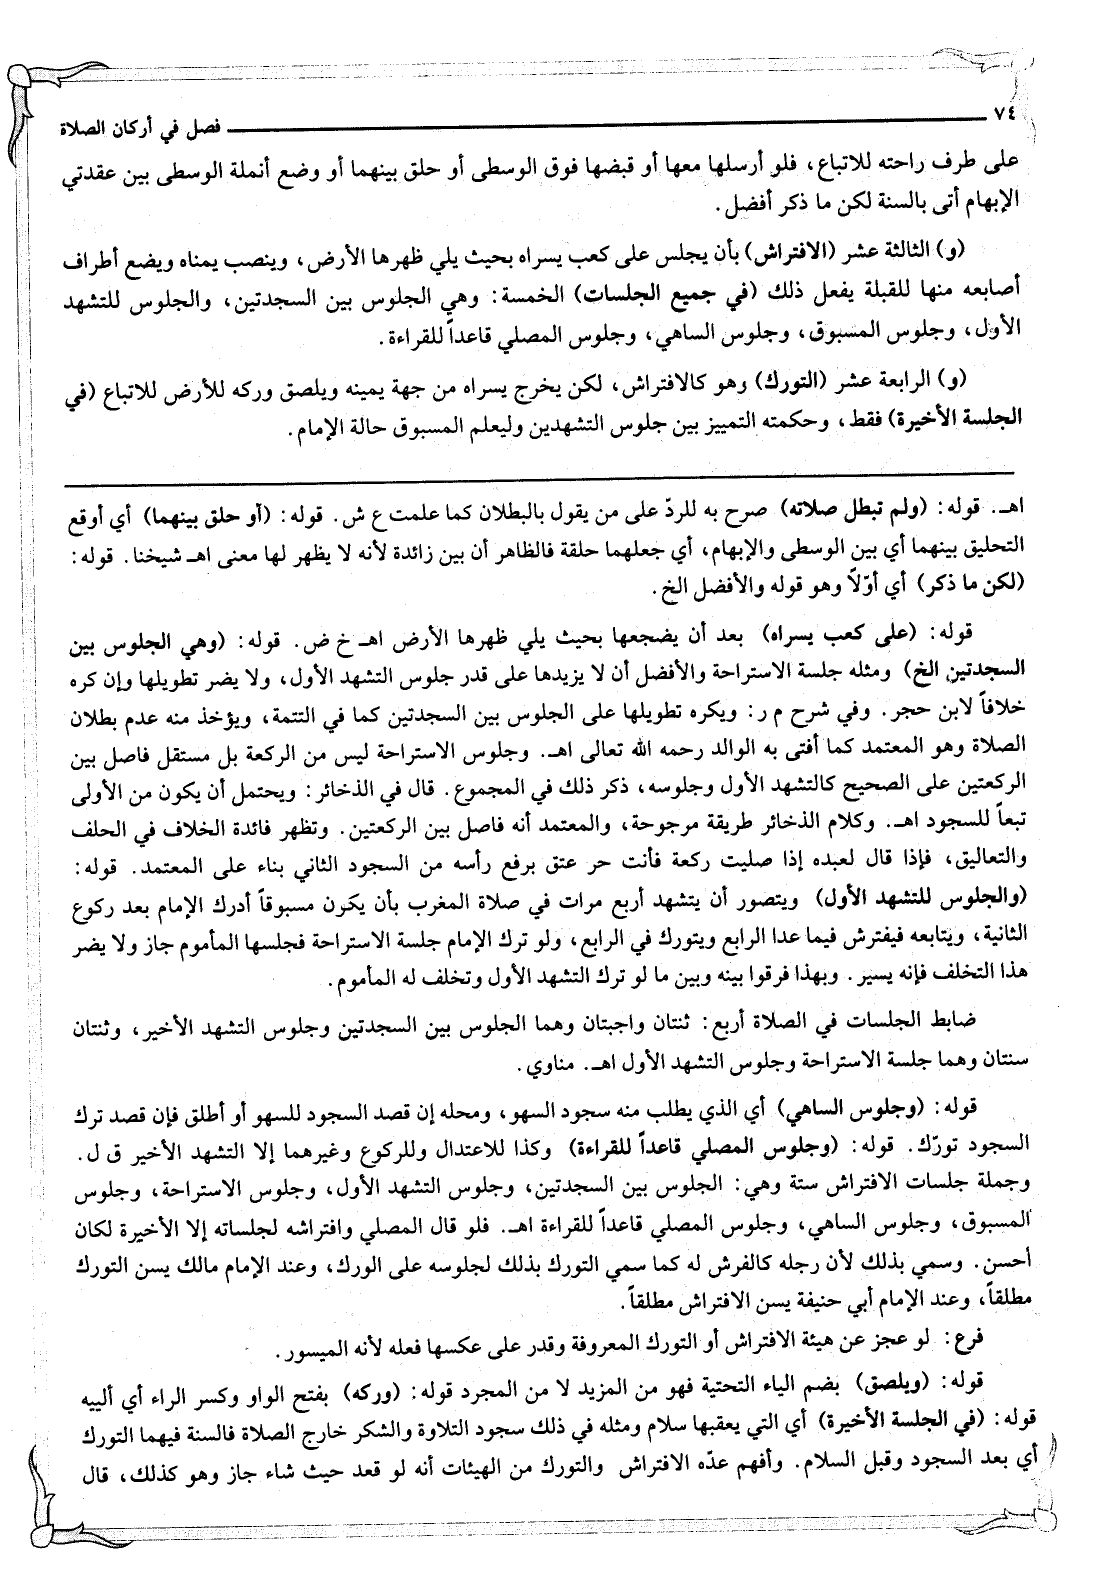 ٧٤ فصل في أركان الصلاة
على طرف راحته للاتباع، فلو أرسلها معها أو قبضها فوق الوسطى أو حلق بينهما أو وضع أنملة الوسطى بين عقدتي
الإبهام أتى بالسنة لكن ما ذكر أفضل.
(و) الثالثة عشر (الافتراش) بأن يجلس على كعب يسراه بحيث يلي ظهرها الأرض، وينصب يمناه ويضع أطراف
أصابعه منها للقبلة يفعل ذلك (في جميع الجلسات) الخمسة: وهي الجلوس بين السجدتين، والجلوس للتشهد
الأول، وجلوس المسبوق، وجلوس الساهي، وجلوس المصلي قاعداً للقراءة.
(و) الرابعة عشر (التورك) وهو كالافتراش، لكن يخرج يسراه من جهة يمينه ويلصق وركه للأرض للاتباع (في
الجلسة الأخيرة) فقط، وحكمته التمييز بين جلوس التشهدين وليعلم المسبوق حالة الإمام.
اهـ. قوله: (ولم تبطل صلاته) صرح به للردّ على من يقول بالبطلان كما علمت ع ش. قوله: (أو حلق بينهما) أي أوقع
التحليق بينهما أي بين الوسطى والإبهام، أي جعلهما حلقة فالظاهر أن بين زائدة لأنه لا يظهر لها معنى اهـ شيخنا. قوله:
(لكن ما ذكر) أي أوّلاً وهو قوله والأفضل الخ.
قوله: (على كعب يسراه) بعد أن يضجعها بحيث يلي ظهرها الأرض اهـ خ ض. قوله: (وهي الجلوس بين
السجدتين الخ) ومثله جلسة الاستراحة والأفضل أن لا يزيدها على قدر جلوس التشهد الأول، ولا يضر تطويلها وإن كره
خلافاً لابن حجر. وفي شرح م ر: ويكره تطويلها على الجلوس بين السجدتين كما في التتمة، ويؤخذ منه عدم بطلان
الصلاة وهو المعتمد كما أفتى به الوالد رحمه الله تعالى اهـ. وجلوس الاستراحة ليس من الركعة بل مستقل فاصل بين
الركعتين على الصحيح كالتشهد الأول وجلوسه، ذكر ذلك في المجموع. قال في الذخائر: ويحتمل أن يكون من الأولى
تبعاً للسجود اهـ. وكلام الذخائر طريقة مرجوحة، والمعتمد أنه فاصل بين الركعتين. وتظهر فائدة الخلاف في الحلف
والتعاليق، فإذا قال لعبده إذا صليت ركعة فأنت حر عتق برفع رأسه من السجود الثاني بناء على المعتمد. قوله:
(والجلوس للتشهد الأول) ويتصور أن يتشهد أربع مرات في صلاة المغرب بأن يكون مسبوقاً أدرك الإمام بعد ركوع
الثانية، ويتابعه فيفترش فيما عدا الرابع ويتورك في الرابع، ولو ترك الإمام جلسة الاستراحة فجلسها المأموم جاز ولا يضر
هذا التخلف فإنه يسير. وبهذا فرقوا بينه وبين ما لو ترك التشهد الأول وتخلف له المأموم.
ضابط الجلسات في الصلاة أربع: ثنتان واجبتان وهما الجلوس بين السجدتين وجلوس التشهد الأخير، وثنتان
سنتان وهما جلسة الاستراحة وجلوس التشهد الأول اهـ. مناوي.
قوله: (وجلوس الساهي) أي الذي يطلب منه سجود السهو، ومحله إن قصد السجود للسهو أو أطلق فإن قصد ترك
السجود تورّك. قوله: (وجلوس المصلي قاعداً للقراءة) وكذا للاعتدال وللركوع وغيرهما إلا التشهد الأخير ق ل.
وجملة جلسات الافتراش ستة وهي: الجلوس بين السجدتين، وجلوس التشهد الأول، وجلوس الاستراحة، وجلوس
المسبوق، وجلوس الساهي، وجلوس المصلي قاعداً للقراءة اهـ. فلو قال المصلي وافتراشه لجلساته إلا الأخيرة لكان
أحسن. وسمي بذلك لأن رجله كالفرش له كما سمي التورك بذلك لجلوسه على الورك، وعند الإمام مالك يسن التورك
مطلقاً، وعند الإمام أبي حنيفة يسن الافتراش مطلقاً.
فرع: لو عجز عن هيئة الافتراش أو التورك المعروفة وقدر على عكسها فعله لأنه الميسور.
قوله: (ويلصق) بضم الياء التحتية فهو من المزيد لا من المجرد قوله: (وركه) بفتح الواو وكسر الراء أي ألييه
قوله: (في الجلسة الأخيرة) أي التي يعقبها سلام ومثله في ذلك سجود التلاوة والشكر خارج الصلاة فالسنة فيهما التورك
أي بعد السجود وقبل السلام. وأفهم عدّه الافتراش والتورك من الهيئات أنه لو قعد حيث شاء جاز وهو كذلك، قال